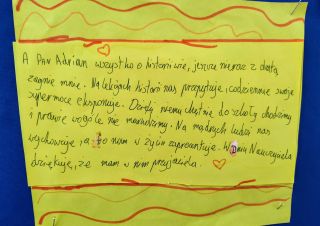 A Pan Adrian wszystko o historii wie, jeszcze nieraz z datą
zagnie mnie. Na lekcjach historii nas przepytuje, codziennie swoje
supermoce eksponuje. Dzięki niemu chętnie do szkoły chodzimy
i prawie wogóle nie marudzimy. Na mądrych ludzi nas
wychowuje, a to nam w życiu zaprocentuje. W Dniu Nauczyciela
dziękuję, że mam w nim przyjaciela.